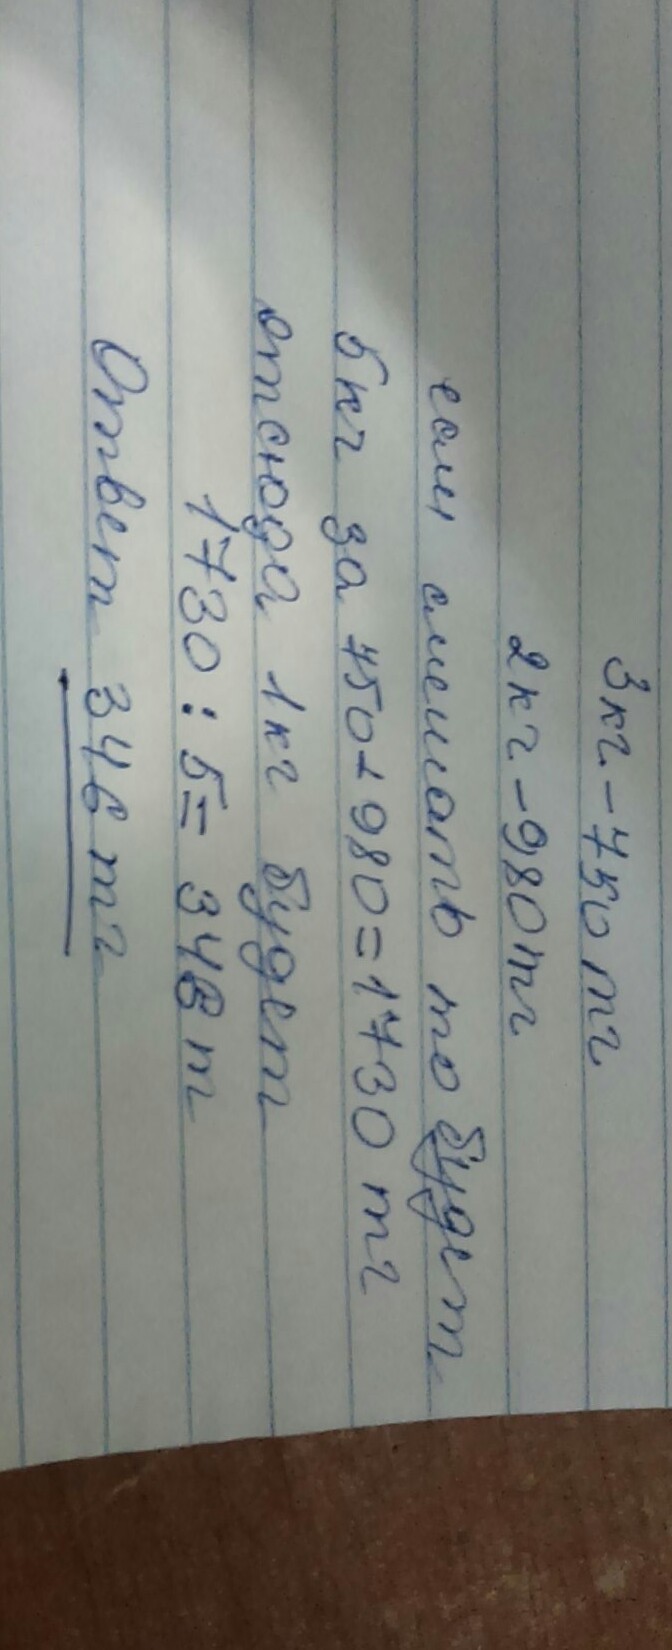 3кг-750 тг
2кг-980тг
если смешать то будет
5кг за 750+980=1730 тг
отсюда 1кг будет
1730:5=346т
Ответ 346тг